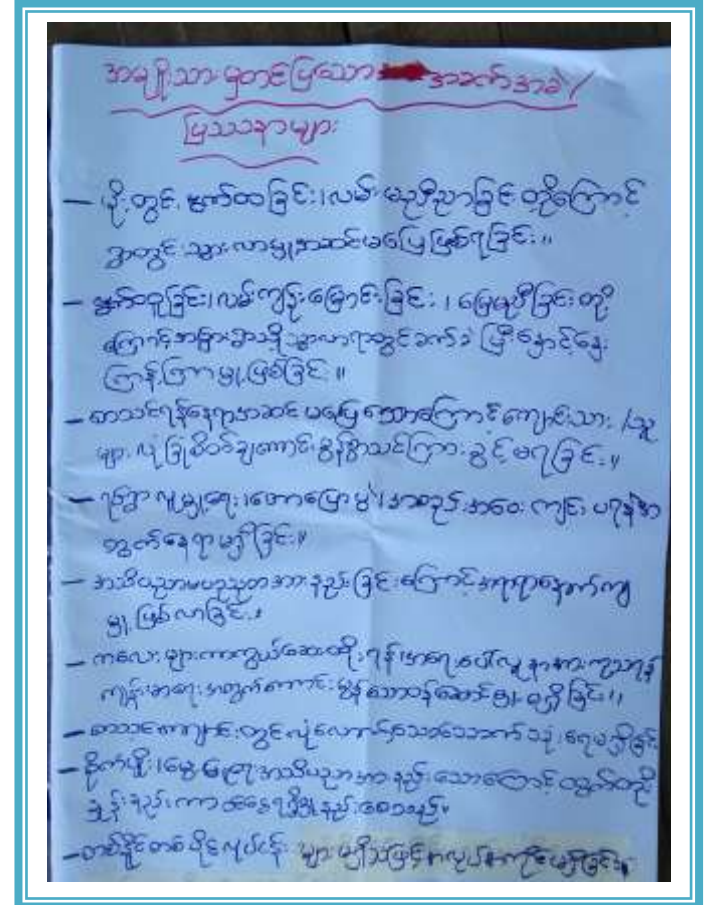 အမျိုးသားမှတင်ပြသော အခက်အခဲ/
ပြဿနာများ
– မိုးတွင်း နွံ့ထခြင်း၊ လမ်း မညီညာခြင်း တို့ကြောင့်
ရွာတွင်း သွားလာမှုအဆင်မပြေဖြစ်ရခြင်း။
– ထူခြင်း၊ လမ်းကျဉ်းမြောင်းခြင်း၊ မြေမညီခြင်းတို့
ကြောင့် အခြားရွာသို့ သွားလာရာတွင် ခက်ခဲ ပြီးနှောင့်နှေး
ကြန့်ကြာမှု ဖြစ်ခြင်း။
– စာသင်ရန်နေရာအဆင် မပြေသောကြောင့် ကျောင်းသား/သူ
များ လုံခြုံစိတ်ချ ကောင်းမွန်စွာသင်ကြားခွင့် မရခြင်း။
– ရပ်ရွာလူမှုရေး၊ ဟောပြောပွဲ၊ အစည်းအဝေး ကျင်းပရန်အ
တွက်နေရာမရှိခြင်း။
– အသိပညာဗဟုသုတအားနည်းခြင်းကြောင့် အရာရာနောက်ကျ
မှု ဖြစ်လာခြင်း။
– ကလေးများကာကွယ်ဆေးထိုးရန်၊ အရေးပေါ်လူနာအားကုသရန်
ကျန်းမာရေးအတွက်ကောင်းမွန်သောဝန်ဆောင်မှု မရှိခြင်း။
– စာသင်ကျောင်းတွင် လုံလောက်သောသောက်သုံးရေမရှိခြင်း
– စိုက်ပျိုး၊ မွေးမြူရေးအသိပညာအားနည်းသောကြောင့် ထွက်တိုး
နှုန်းနည်းကာ ဝင်ငွေရရှိမှုနည်းစေသည်။
– တစ်နိုင်တစ်ပိုင်လုပ်ငန်းများမရှိသဖြင့် အလုပ်အကိုင်မရှိခြင်း။